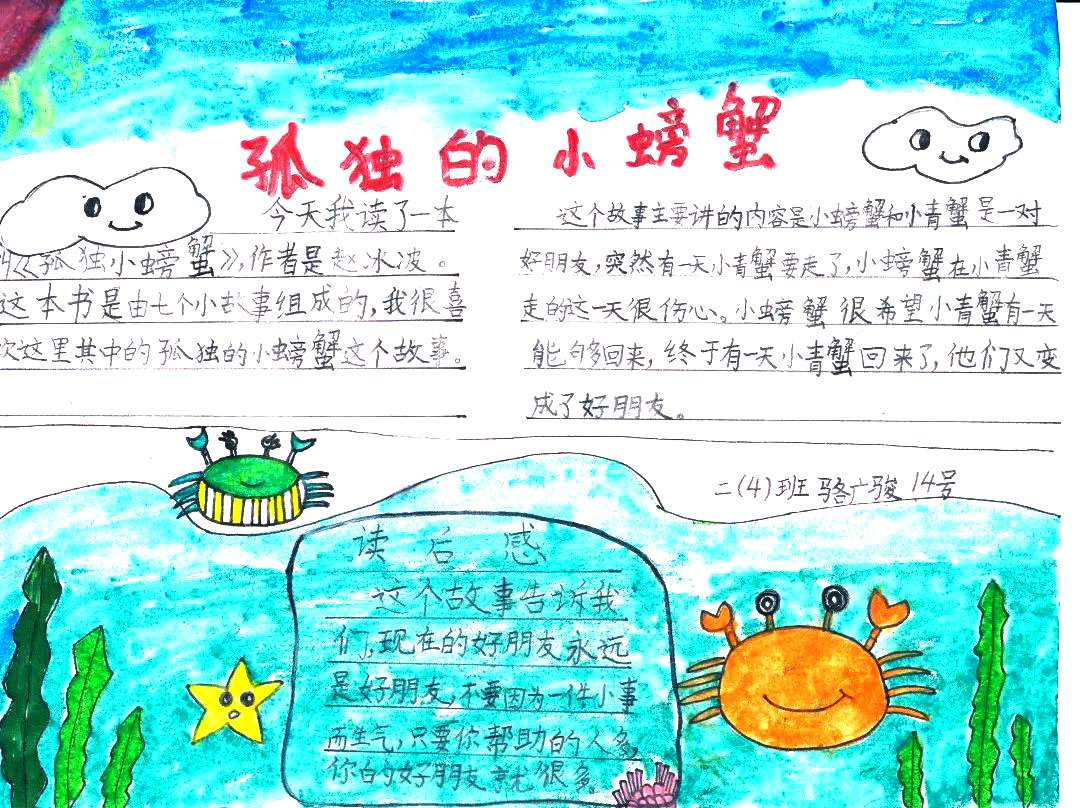 孤独的小螃蟹
今天我读了一本
叫《孤独小螃蟹》,作者是赵冰波。
这本书是由七个小故事组成的,我很喜
欢这里其中的孤独的小螃蟹这个故事。
这个故事主要讲的内容是小螃蟹和小青蟹是一对
好朋友,突然有一天小青蟹要走了,小螃蟹在小青蟹
走的这一天很伤心。小螃蟹很希望小青蟹有一天
能够回来,终于有一天小青蟹回来了,他们又变
成了好朋友。
二(4)班 骆广骏 14号
读后感
这个故事告诉我
们,现在的好朋友永远
是好朋友,不要因为一件小事
而生气,只要你帮助的人多,
你的好朋友就很多。